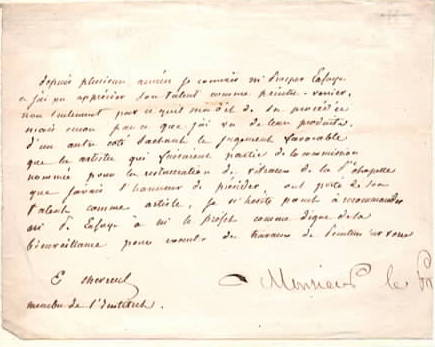 depuis plusieurs années je connais mr Prosper Lafaye
et j'ai pu apprécier son talent comme peintre-verrier,
non seulement par ce qu'il m'a dit de ses procédés
mais encore parce que j'ai vu de leurs produits.
d'un autre coté sachant le jugement favorable
que les artistes qui faisaient partie de la commission
nommée pour la restauration de vitraux de la Ste chapelle
que j'avais l'honneur de présider ont porté de son
talent comme artiste, je n'hésite point à recommander
mr P. Lafaye à mr le préfet comme digne de la
bienveillance pour executer des travaux de peinture sur verre
E Chevreul
membre de l'Institut.
Monsieur le Pr